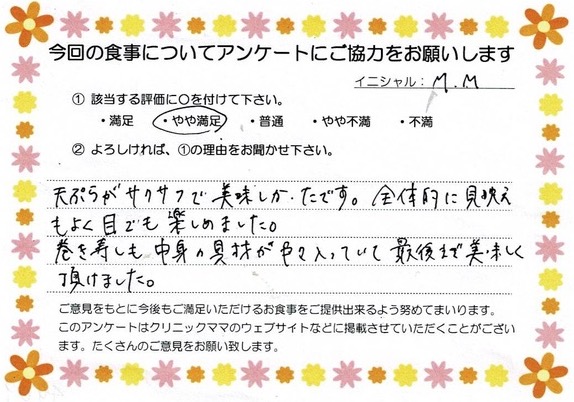 今回の食事についてアンケートにご協力をお願いします
イニシャル： M.M
① 該当する評価に〇を付けて下さい。
・満足 ・やや満足 ・普通 ・やや不満 ・不満
② よろしければ、①の理由をお聞かせ下さい。
天ぷらがサクサクで美味しかったです。全体的に見映え
もよく目でも楽しめました。
巻き寿しも中身の具材が 入っていて最後まで美味しく
頂けました。
ご意見をもとに今後もご満足いただけるお食事をご提供出来るよう努めてまいります。
このアンケートはクリニックママのウェブサイトなどに掲載させていただくことがござい
ます。たくさんのご意見をお願い致します。